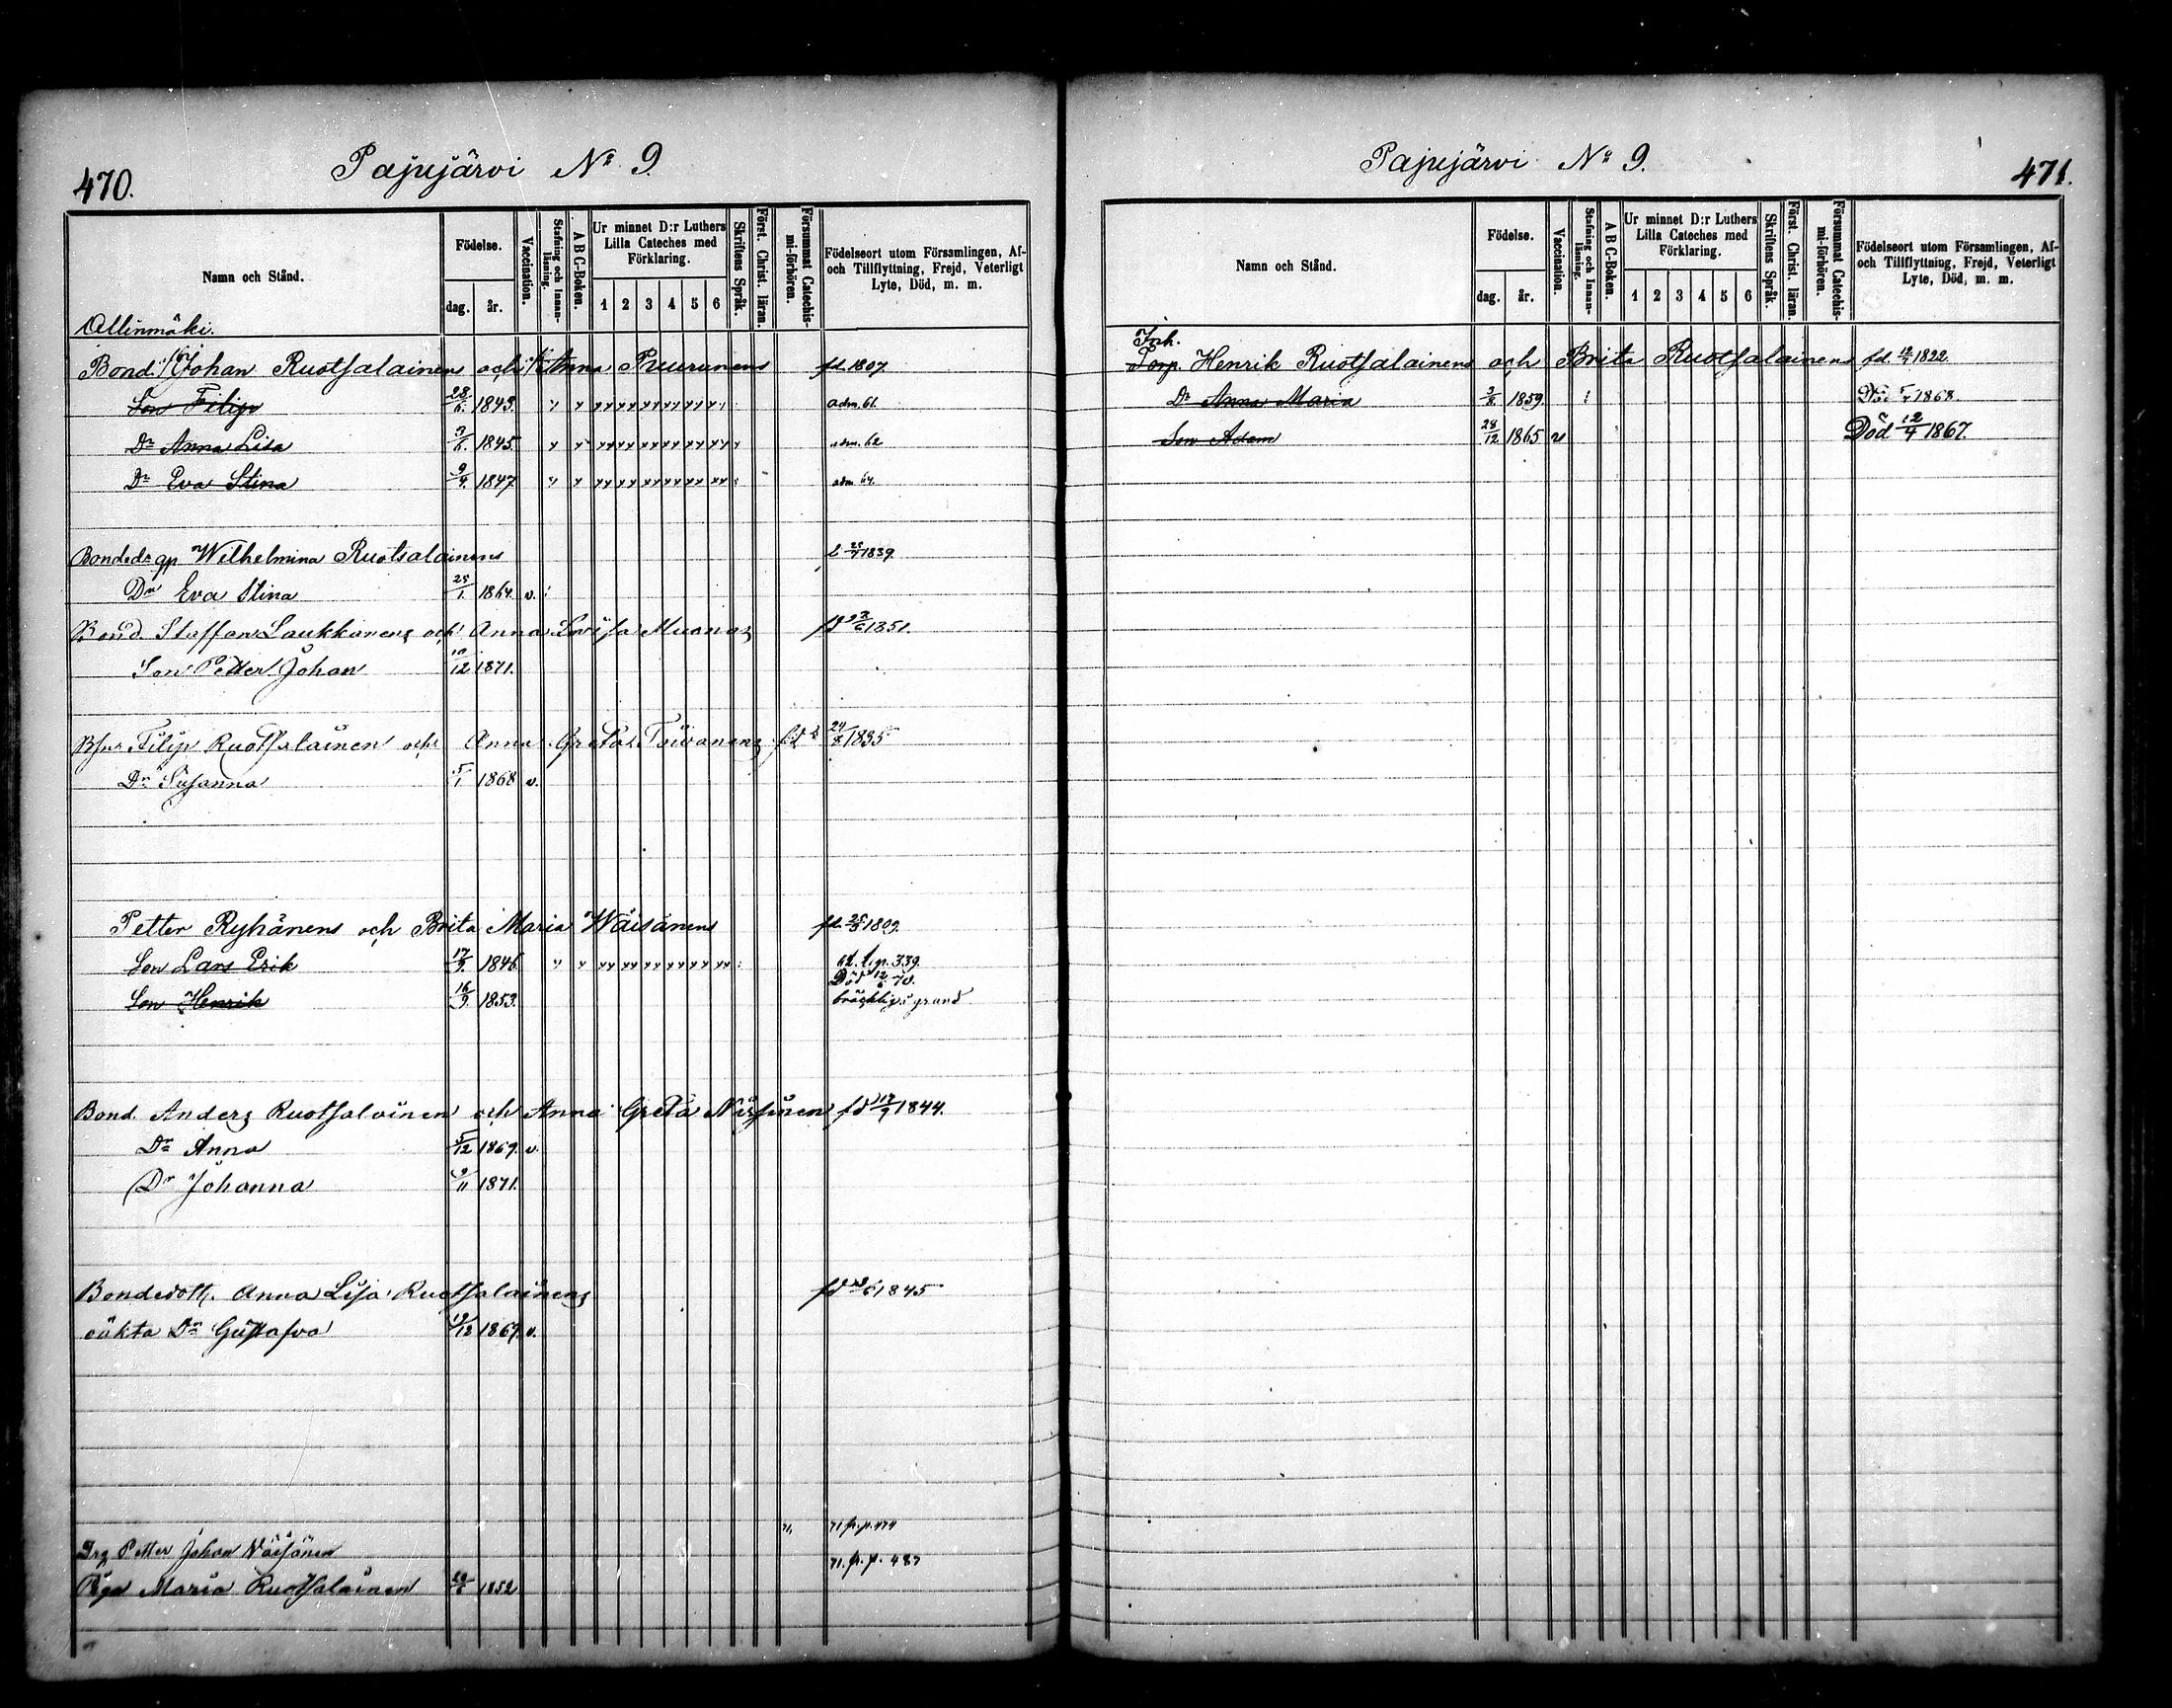 470.
Pajujärvi No 9.
Namn och Stånd.
Födelse.
dag.
år.
Vaccination.
Stafning och Innan-läsning.
A B C-Boken.
Ur minnet D:r Luthers Lilla Cateches med Förklaring.
1 2 3 4 5 6
Skriftens Språk.
Först. Christ. läran.
Försummat Catechis-mi-förhören.
Födelseort utom Församlingen, Af- och Tillflyttning, Frejd, Veterligt Lyte, Död, m. m.
Allinmäki.
Bond. Johan Ruotsalainens och Anna Puurunens fd. 1807
Son Filip 28/6. 1843. adm. 61.
Dr Anna Lisa 1845. adm. 62
Dr Eva Stina 9/4. 1847 adm. 64.
Bondedr qp Wilhelmina Ruotsalainens 1839.
Dr Eva Stina 25/1. 1864. v.
Bond. Staffan Laukkanens och Anna Lovisa Muonas 1851.
Son Petter Johan 10/12 1871.
Filip Ruotsalainen och Anna Greta Toivanens 24/8 1835
Dr Susanna 5/1 1868 v.
Petter Ryhänens och Brita Maria Wäisänens fd. 1809.
Son Lars Erik 17/9. 1846 p. 339.
Död 12/6 70.
Son Henrik 16/9. 1853.
Bond. Anders Ruotsalainen och Anna Greta Nissinen fd 1844.
Dr Anna 5/12 1869. v.
Dr Johanna 9/11 1871.
Bondedott. Anna Lisa Ruotsalainens 1845
oäkta Dr Gustafva 1869. v.
71 fr. p. 474
Drg Petter Johan Väisänen
71. fr. p. 487
Pigan Maria Ruotsalainen 1852
Pajujärvi No 9.
471.
Namn och Stånd.
Födelse.
dag.
år.
Vaccination.
Stafning och Innan-läsning.
A B C-Boken.
Ur minnet D:r Luthers Lilla Cateches med Förklaring.
1 2 3 4 5 6
Skriftens Språk.
Först. Christ. läran.
Försummat Catechis-mi-förhören.
Födelseort utom Församlingen, Af- och Tillflyttning, Frejd, Veterligt Lyte, Död, m. m.
Inh.
Torp. Henrik Ruotsalainens och Brita Ruotsalainens fd. 1822.
Dr Anna Maria 3/8. 1859. Död 1868.
Son Adam 28/12 1865 v Död 12/4 1867.